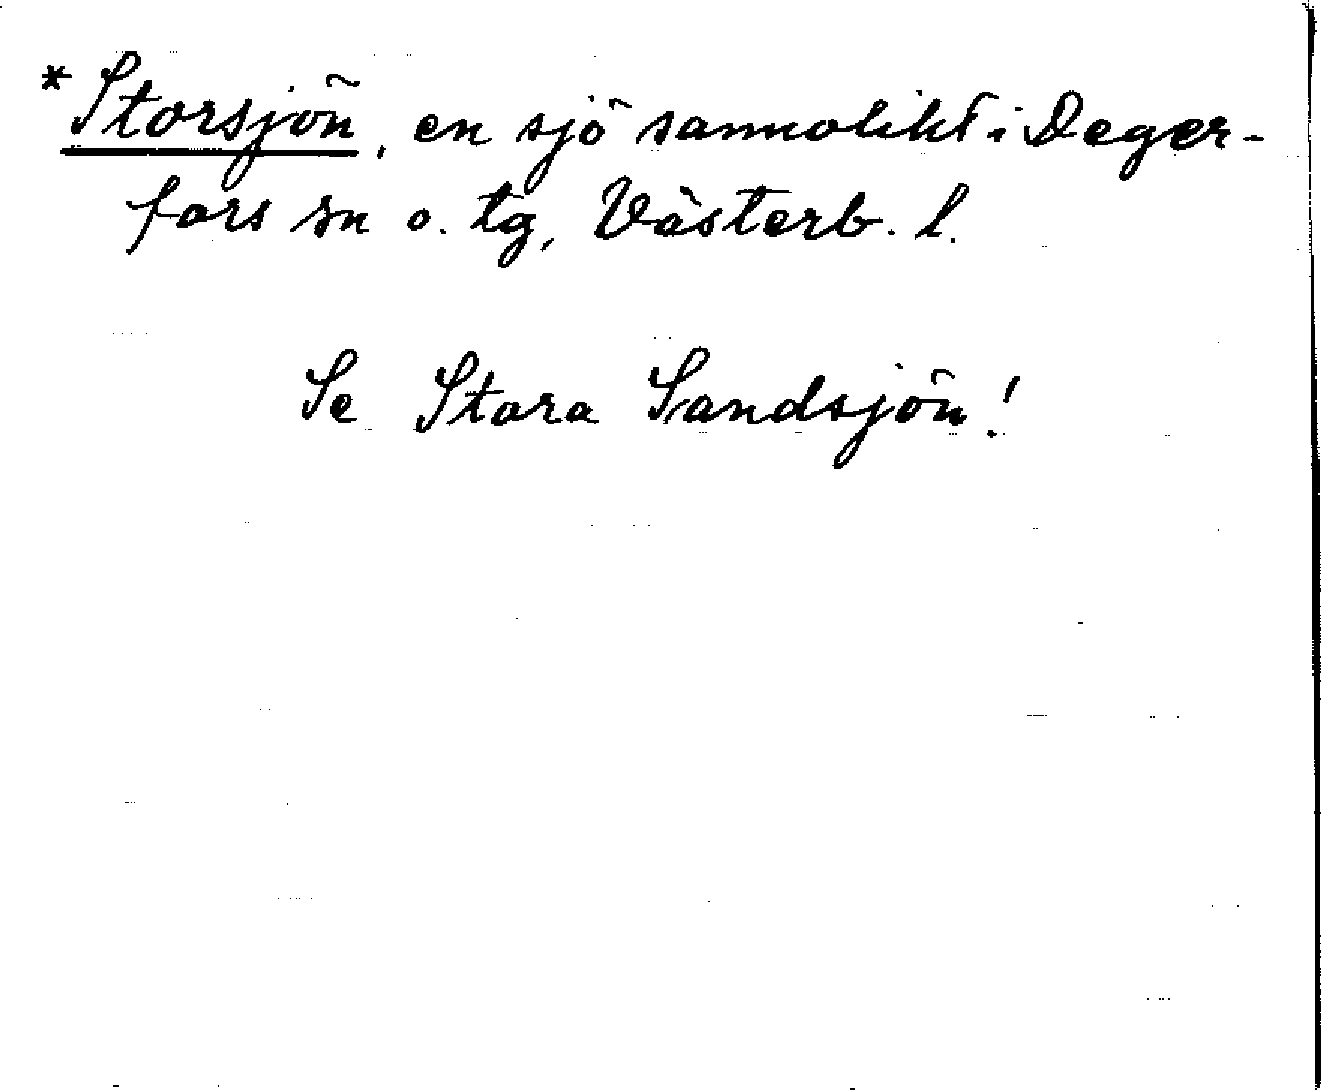 *Storsjön, en sjö sannolikt i Deger-
fors sn o. tg, Västerb. l.
Se Stora Sandsjön!